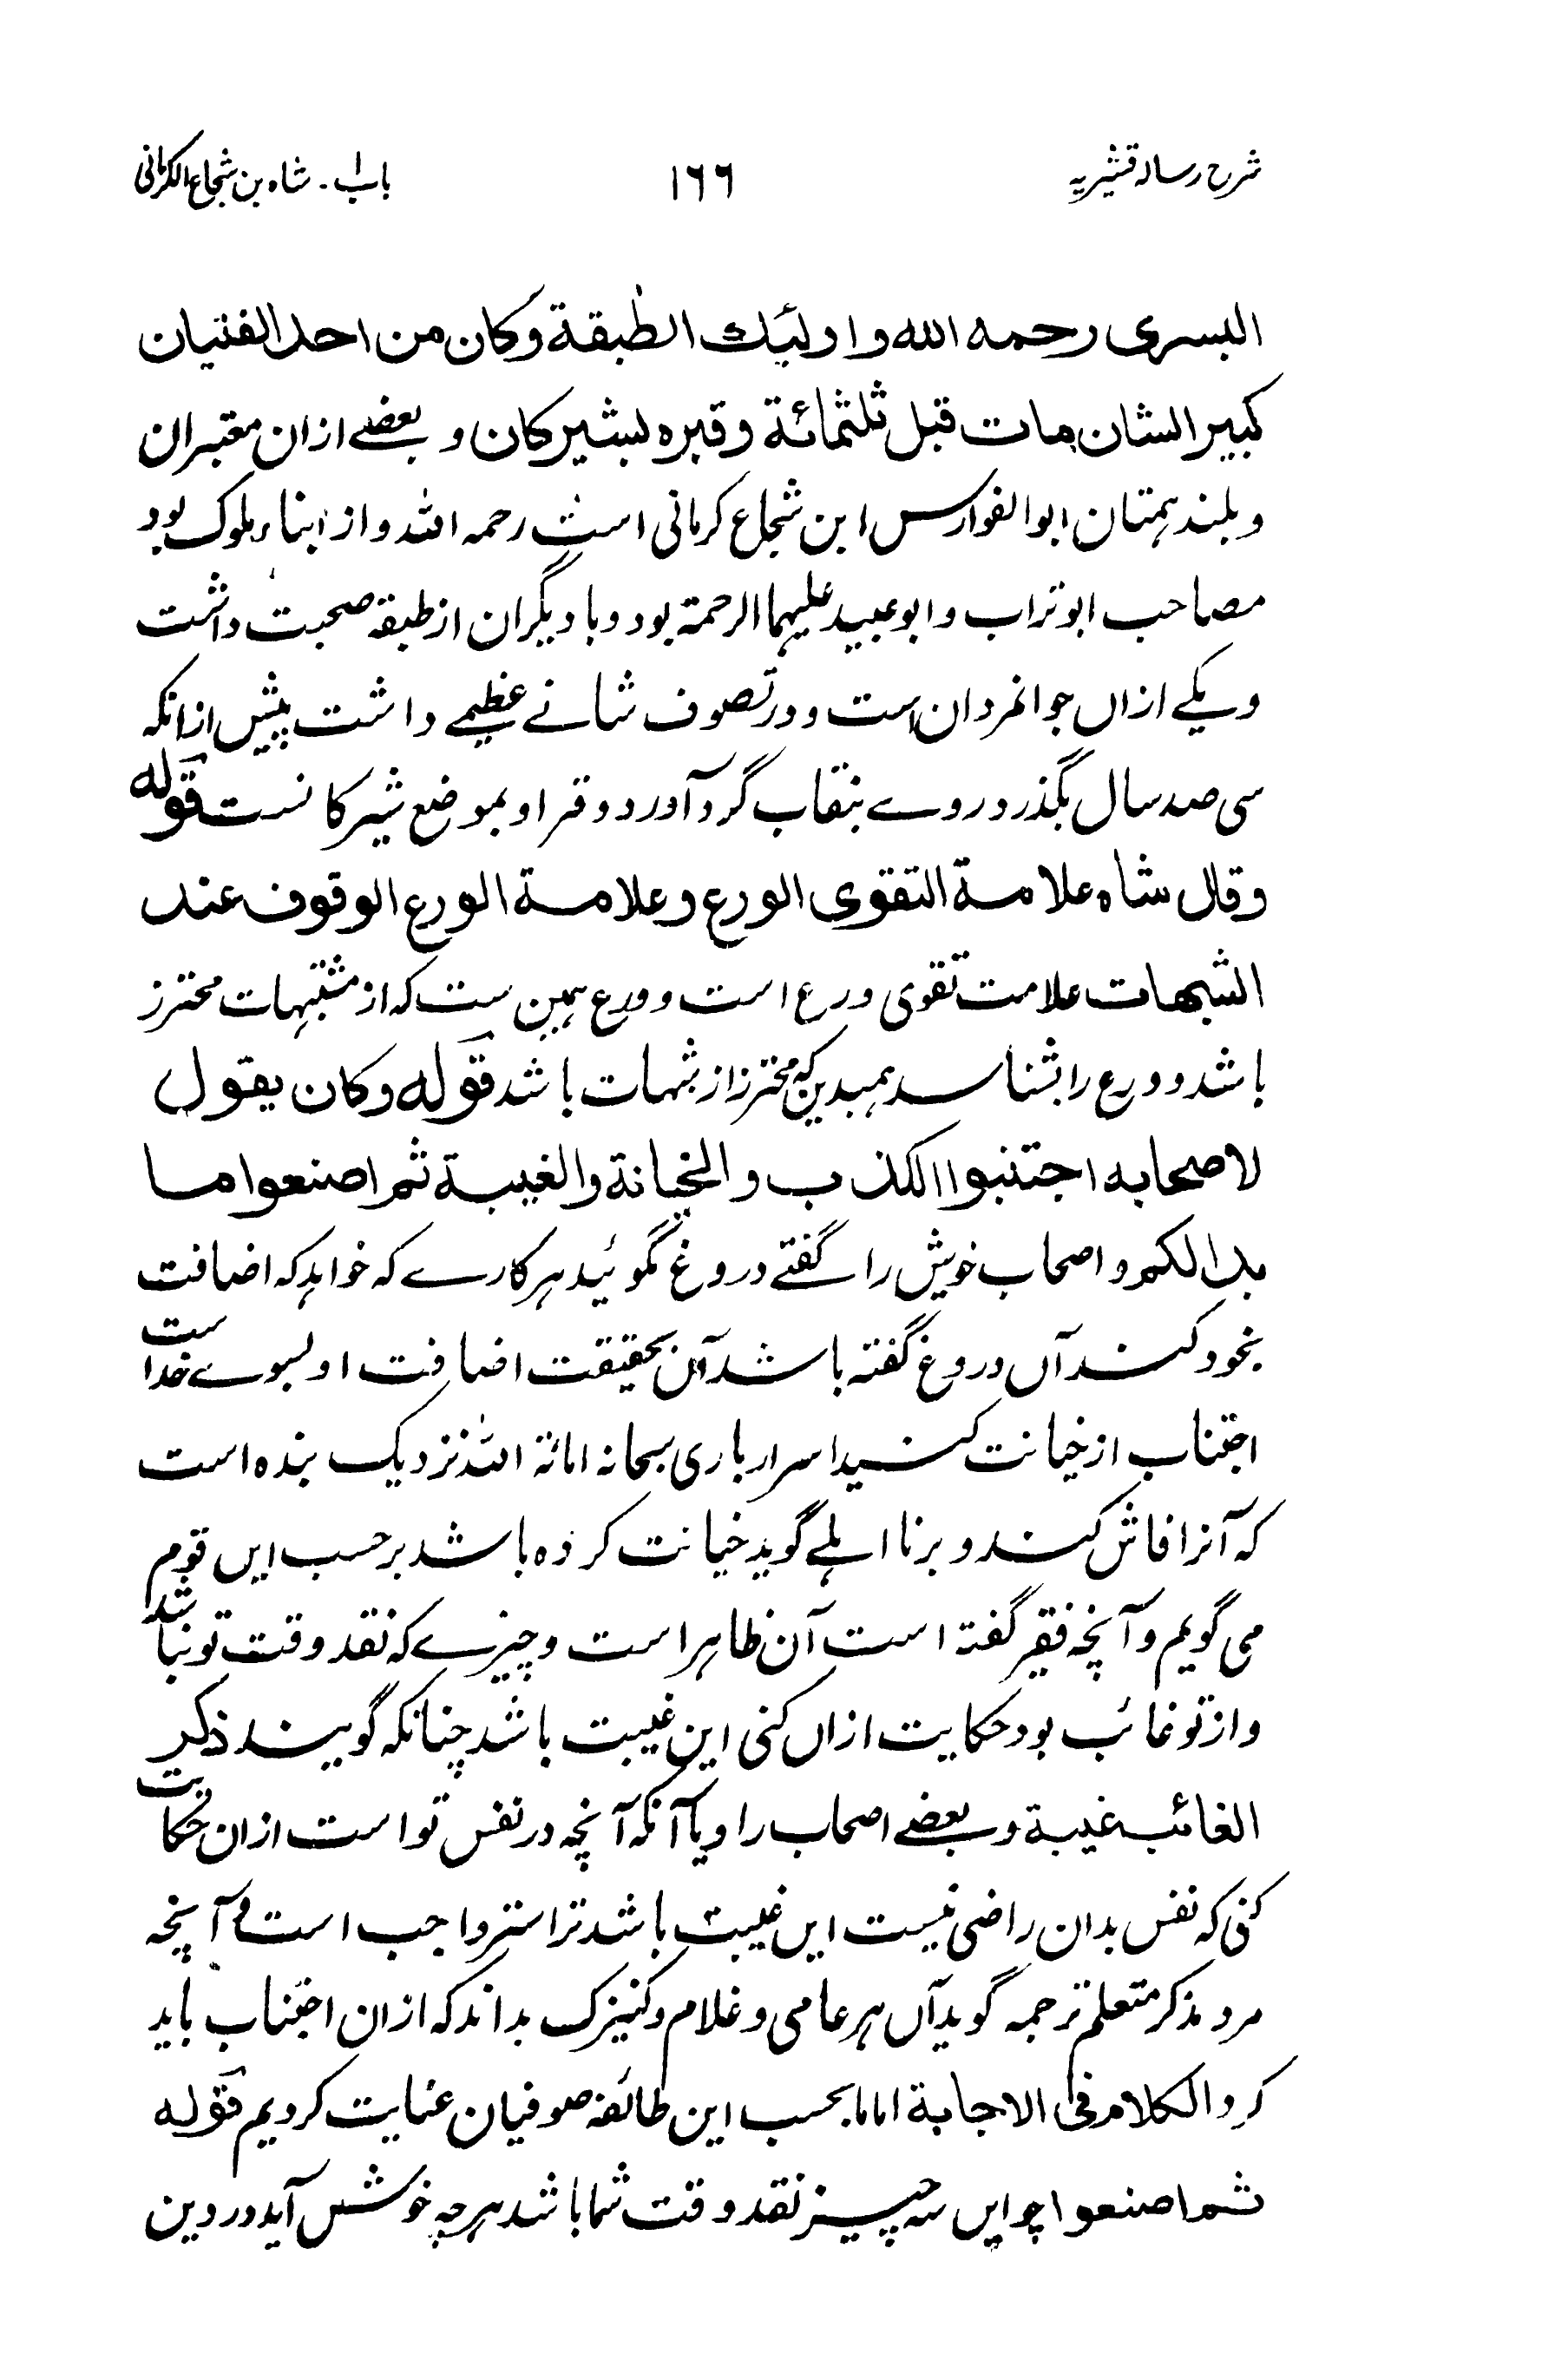 شرح رساله قشیریه ١٦٦ باب١ - شاه بن شجاع الکرمانی
البسری رحمه الله و اولٰئک الطبقة وکان من احد الفتیان
کبیر الشان مات قبل ثلثمائة و قبره بشیرکان و بعضے ازان معتبران
و بلند همتان ابو الفوارس ابن شجاع کرمانی است رحمه الله و از ابناء ملوک بود
مصاحب ابو تراب و ابو عبید علیهما الرحمة بود و با دیگران از طبقه صحبت داشت
و یکے ازاں جوانمردان است و در تصوف شانے عظیمے داشت پیش ازانکه
سی صد سال بگذرد روے بنقاب گرد آورد و قبر او بموضع شیرکانست قوله
وقال شاه علامة التقوی الورع وعلامة الورع الوقوف عند
الشبهات علامت تقوی ورع است و ورع همین ست که از مشتبهات محترز
باشد و ورع را بشناسد بهمیدین که محترز از شبهات باشد قوله وکان یقول
لاصحابه اجتنبوا الکذب والخیانة والغیبة ثم اصنعوا ما
بدا لکم و اصحاب خویش را گفتے دروغ مگوئید هر کارے که خواهد که اضافت
بخود کند آں دروغ گفته باشد آن بحقیقت اضافت او بسوے خداست
اجتناب از خیانت کنید اسرار باری سبحانه امانة الله نزدیک بنده است
که آنرا فاش کند و برنا اهلے گوید خیانت کرده باشد بر حسب ایں قوم
می گویم و آنچه فقیر گفته است آن ظاهر است و چیزے که نقد وقت تو نباشد
و از تو غائب بود حکایت ازاں کنی این غیبت باشد چنانکه گویند ذکر
الغائب غیبة و بعضے اصحاب را و یا آنکه آنچه در نفس تو است ازان حکایت
کنی که نفس بدان راضی نیست ایں غیبت باشد ترا ستر واجب است و آنچه
مرد مذکر متعلم ترجمه گوید آں هر عامی و غلام و کنیزک بداند که ازان اجتناب باید
کرد الکلام فی الاجابة اما ما بحسب این طائفه صوفیان عنایت کردیم قوله
ثم اصنعوا چو ایں سه چیز نقد وقت شما باشد هرچه خوشس آید در دین